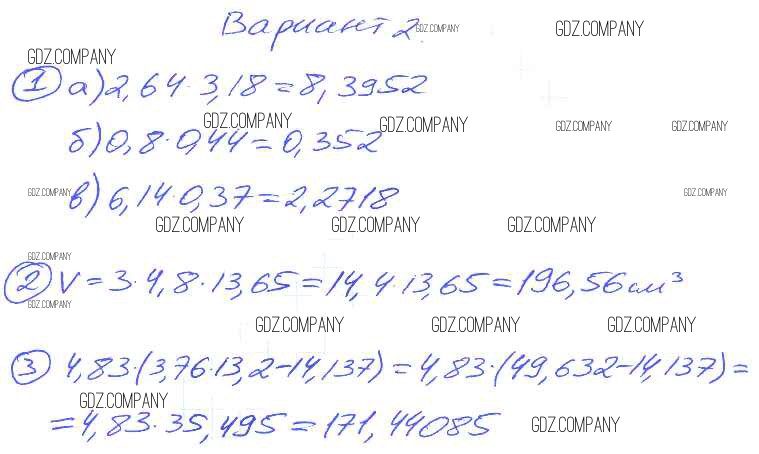 Вариант 2. GDZ.COMPANY GDZ.COMPANY
GDZ.COMPANY
1 а) 2,64·3,18=8,3952
GDZ.COMPANY GDZ.COMPANY GDZ.COMPANY GDZ.COMPANY
б) 0,8·0,44=0,352
GDZ.COMPANY GDZ.COMPANY
в) 6,14·0,37=2,2718
GDZ.COMPANY GDZ.COMPANY GDZ.COMPANY
GDZ.COMPANY
2 V=3·4,8·13,65=14,4·13,65=196,56 см³
GDZ.COMPANY
GDZ.COMPANY GDZ.COMPANY GDZ.COMPANY
3 4,83·(3,76·13,2-14,137)=4,83·(49,632-14,137)=
GDZ.COMPANY
=4,83·35,495=171,44085
GDZ.COMPANY